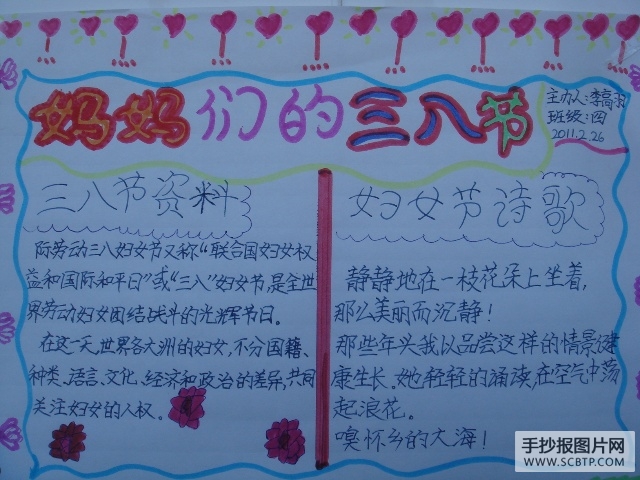 妈妈们的三八节
主办人:李高羽
班级:四
2011.2.26
三八节资料
际劳动三八妇女节又称“联合国妇女权
益和国际和平日”或“三八”妇女节,是全世
界劳动妇女团结战斗的光辉节日。
在这一天,世界各大洲的妇女,不分国籍、
种类、语言、文化、经济和政治的差异,共同
关注妇女的人权。
妇女节诗歌
静静地在一枝花朵上坐着,
那么美丽而沉静!
那些年头我以品尝这样的情景健
康生长,她轻轻的诵读,在空气中荡
起浪花。
嗅怀乡的大海!
手抄报图片网
WWW.SCBTP.COM